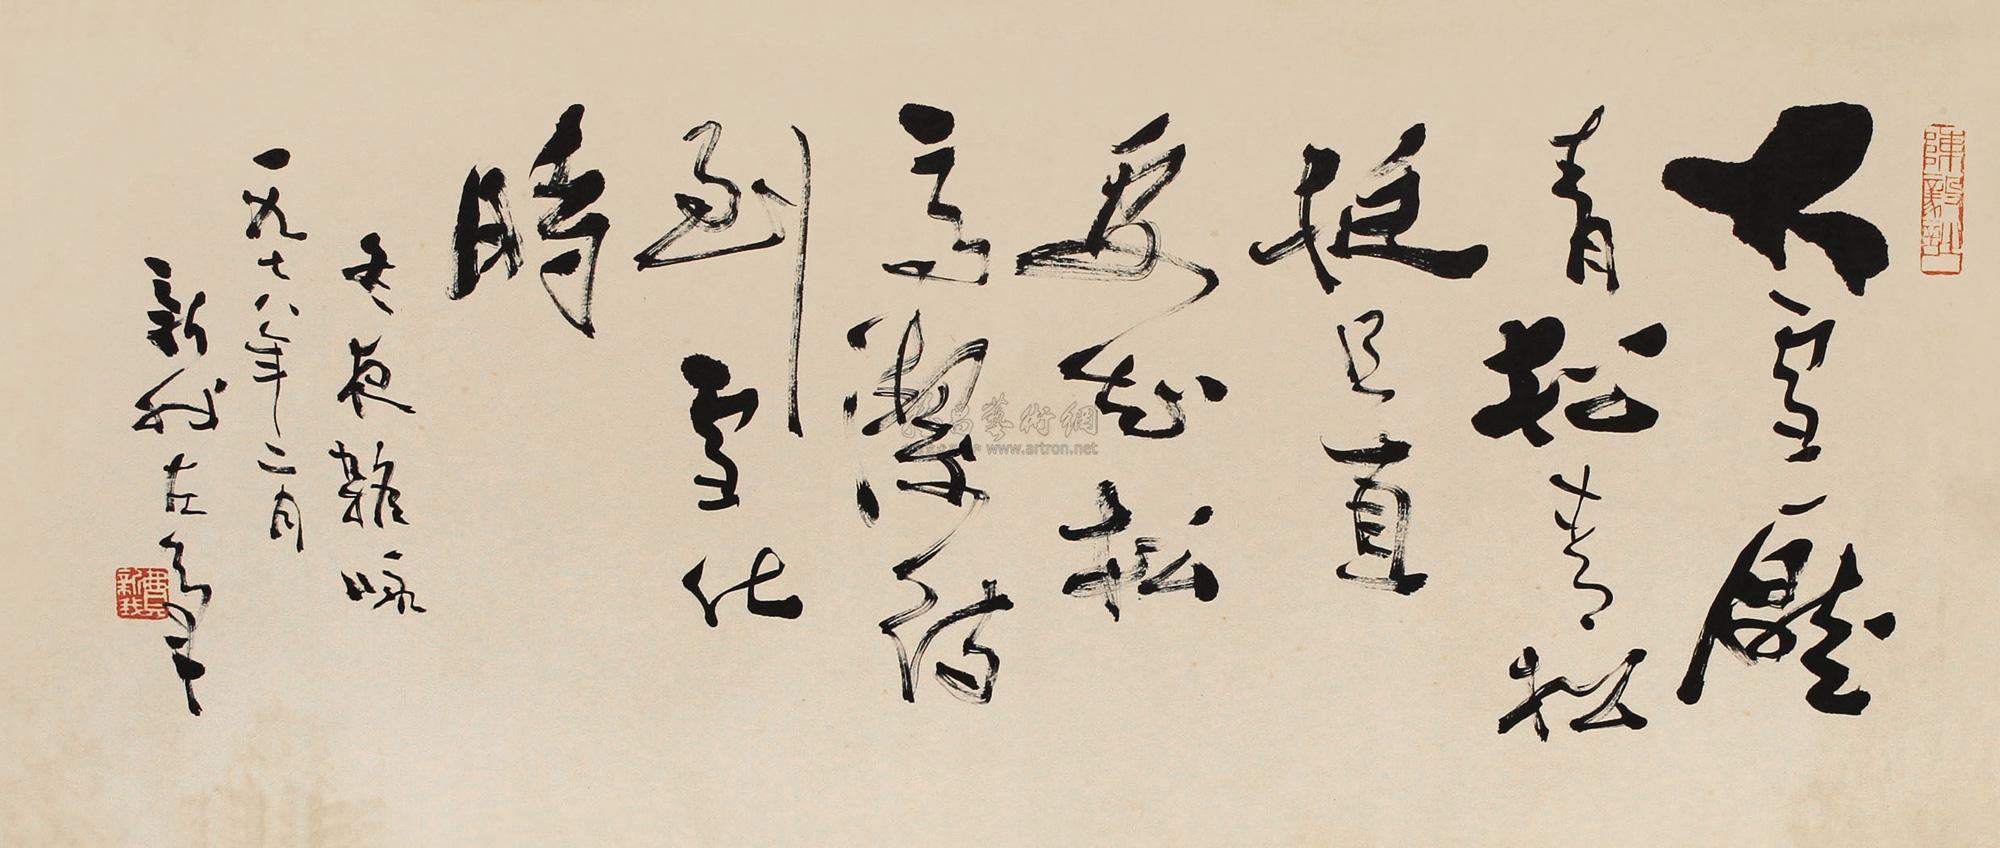 大雪壓
青松青松
挺且直
要知松
高潔待
到雪化
時
冬夜雜咏
一九七八年二月
新我左筆
陳毅
新我
昌藝術網
www.artron.net